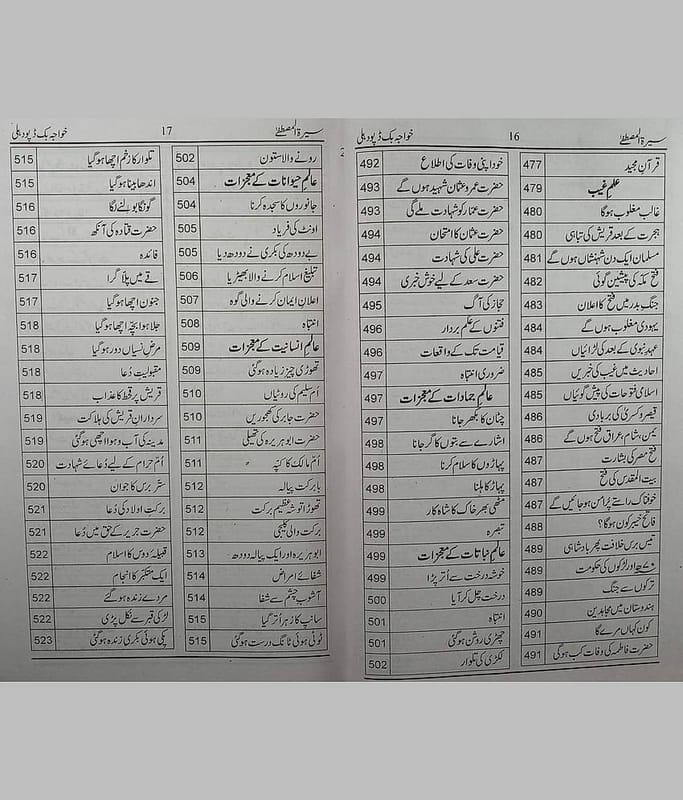 سیرۃ المصطفےٰ 16 خواجہ بک ڈپو دہلی
قرآن مجید 477
علمِ غیب 479
غالب مغلوب ہوگا 480
ہجرت کے بعد قریش کی تباہی 480
مسلمان ایک دن شہنشاہ ہوں گے 481
فتح مکہ کی پیشین گوئی 482
جنگِ بدر میں فتح کا اعلان 483
یہودی مغلوب ہوں گے 484
عہدِ نبوی کے بعد کی لڑائیاں 484
احادیث میں غیب کی خبریں 485
اسلامی فتوحات کی پیش گوئیاں 485
قیصر و کسریٰ کی بربادی 486
یمن، شام، عراق فتح ہوں گے 486
فتح مصر کی بشارت 487
بیت المقدس کی فتح 487
خوفناک راستے پُرامن ہو جائیں گے 487
فاتح خیبر کون ہوگا؟ 488
تیس برس خلافت پھر بادشاہی 489
اور لڑکوں کی حکومت 489
ترکوں سے جنگ 489
ہندوستان میں مجاہدین 490
کون کہاں مرے گا 491
حضرت فاطمہ کی وفات کب ہوگی 491
خود اپنی وفات کی اطلاع 492
حضرت عمر و عثمان شہید ہوں گے 493
حضرت عمار کو شہادت ملے گی 493
حضرت عثمان کا امتحان 494
حضرت علی کی شہادت 494
حضرت سعد کے لیے خوش خبری 494
حجاز کی آگ 495
فتنوں کے علم بردار 496
قیامت تک کے واقعات 496
ضروری انتباہ 497
عالمِ جمادات کے معجزات 497
چٹان کا بکھر جانا 497
اشارے سے بتوں کا گر جانا 498
پہاڑوں کا سلام کرنا 498
پہاڑ کا ہلنا 498
مٹھی بھر خاک کا شاہ کار 499
تبصرہ 499
عالمِ نباتات کے معجزات 499
خوشہ درخت سے اُتر پڑا 499
درخت چل کر آیا 500
انتباہ 501
چھڑی روشن ہوگئی 501
لکڑی کی تلوار 502
سیرۃ المصطفےٰ 17 خواجہ بک ڈپو دہلی
رونے والا ستون 502
عالمِ حیوانات کے معجزات 504
جانوروں کا سجدہ کرنا 504
اونٹ کی فریاد 505
بے دودھ کی بکری نے دودھ دیا 505
تبلیغِ اسلام کرنے والا بھیڑیا 506
اعلانِ ایمان کرنے والی گوہ 507
انتباہ 508
عالمِ انسانیت کے معجزات 509
تھوڑی چیز زیادہ ہوگئی 509
اُمِّ سلیم کی روٹیاں 510
حضرت جابر کی کھجوریں 510
حضرت ابوہریرہ کی تھیلی 511
اُمِّ مالک کا کپہ 511
بابرکت پیالہ 512
تھوڑا توشہ عظیم برکت 512
برکت والی کلیجی 512
ابوہریرہ اور ایک پیالہ دودھ 513
شفائے امراض 514
آشوبِ چشم سے شفا 514
سانپ کا زہر اُتر گیا 515
ٹوٹی ہوئی ٹانگ درست ہوگئی 515
تلوار کا زخم اچھا ہوگیا 515
اندھا بینا ہوگیا 515
گونگا بولنے لگا 516
حضرت قتادہ کی آنکھ 516
فائدہ 516
قے میں پلا گرا 517
جنون اچھا ہوگیا 517
جلا ہوا بچہ اچھا ہوگیا 518
مرضِ نسیاں دور ہوگیا 518
مقبولیتِ دعا 518
قریش پر قحط کا عذاب 518
سردارانِ قریش کی ہلاکت 519
مدینہ کی آب و ہوا اچھی ہوگئی 519
اُمِّ حرام کے لیے دُعائے شہادت 520
ستر برس کا جوان 520
برکتِ اولاد کی دُعا 521
حضرت جریر کے حق میں دُعا 521
قبیلہ دوس کا اسلام 522
ایک متکبر کا انجام 522
مردے زندہ ہوگئے 522
لڑکی قبر سے نکل پڑی 522
پکی ہوئی بکری زندہ ہوگئی 523